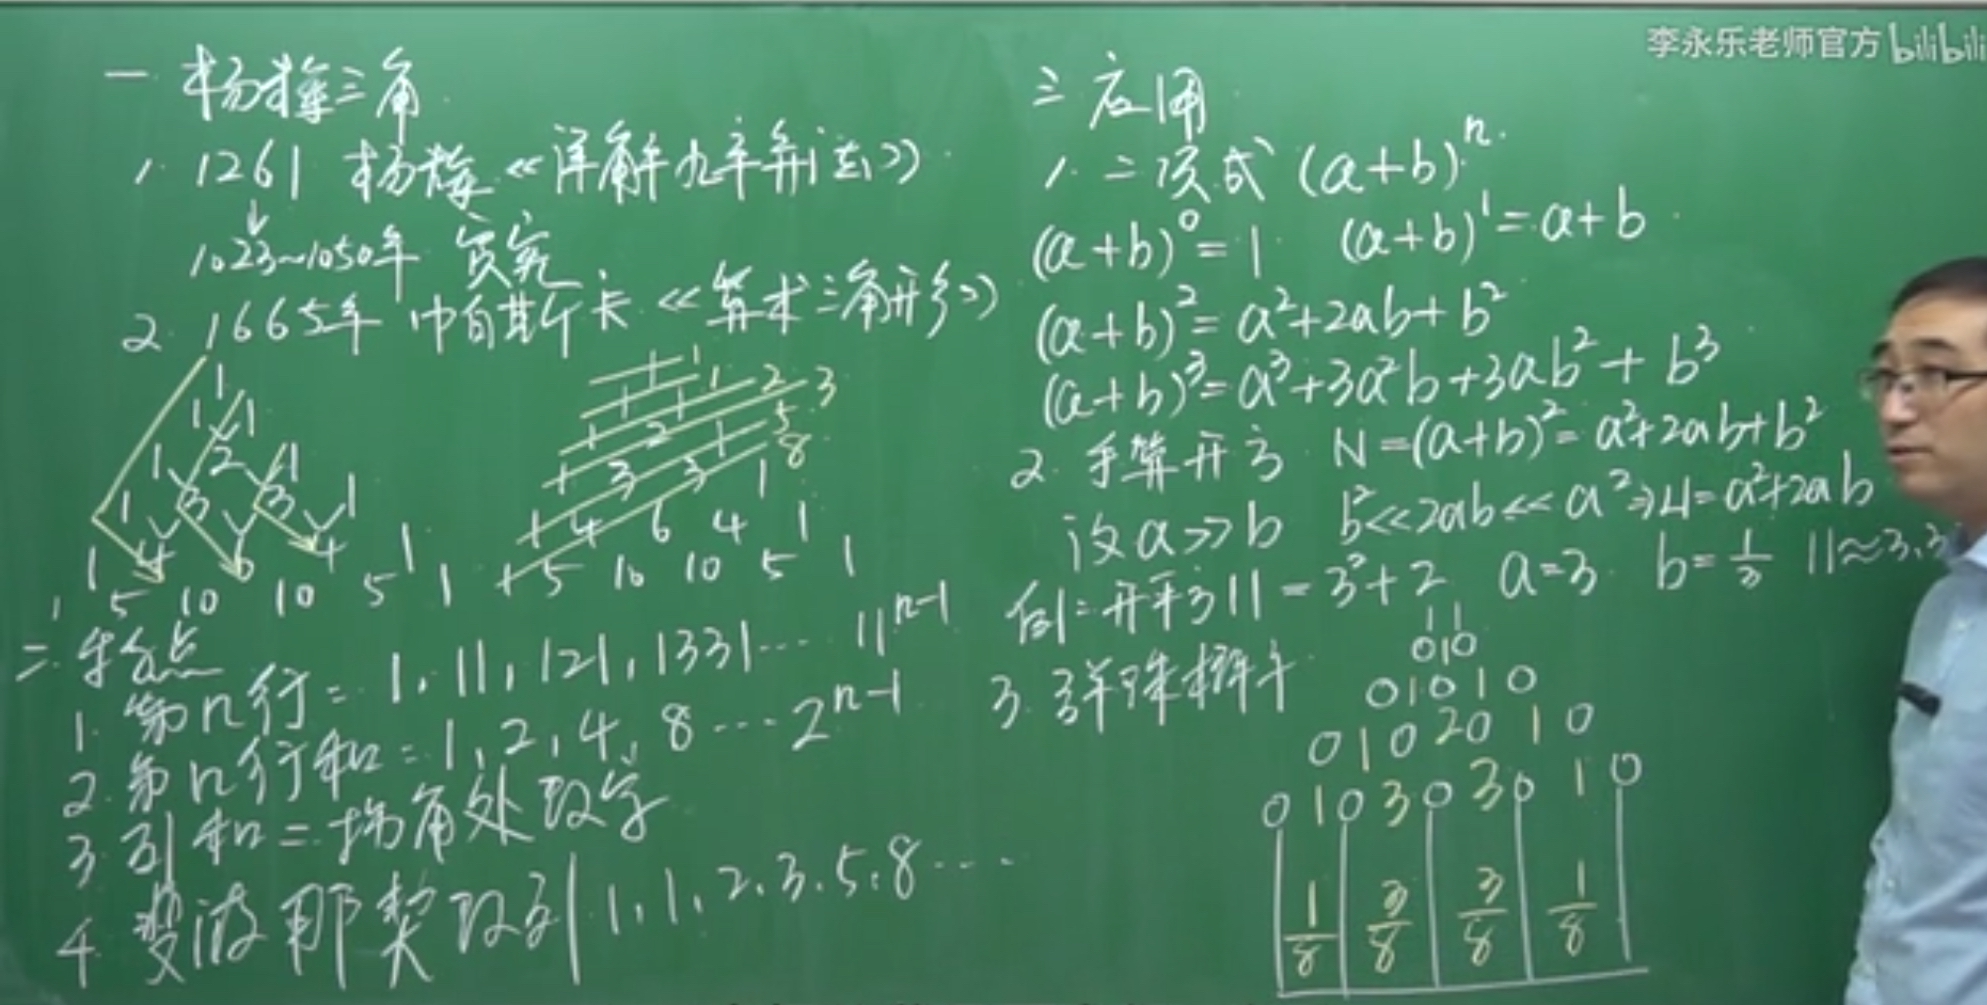 李永乐老师官方 bilibili
一 杨辉三角
1. 1261 杨辉《详解九章算法》
1023~1050年 贾宪
2. 1665年 帕斯卡《算术三角形》
1
1 1
1 2 1
1 3 3 1
1 4 6 4 1
1 5 10 10 5 1
1 1
1 1 1 2 3
1 2 1 5
1 3 3 1 8
1 4 6 4 1
1 5 10 10 5 1
二. 特点
1. 第n行: 1, 11, 121, 1331… 11^{n-1}
2. 第n行和: 1, 2, 4, 8 … 2^{n-1}
3. 列和 = 拐角处数字
4. 斐波那契数列 1, 1, 2, 3, 5, 8 …
三 应用
1. 二项式 (a+b)^n
(a+b)^0 = 1 (a+b)^1 = a+b
(a+b)^2 = a^2+2ab+b^2
(a+b)^3 = a^3+3a^2b+3ab^2+b^3
2. 手算开方 N=(a+b)^2=a^2+2ab+b^2
设a>>b b^2<<2ab<<a^2 ⇒ N=a^2+2ab
例: 开平方11=3^2+2 a=3 b=1/3 11≈3.3
3. 弹珠
1 1
0 1 0
0 1 0 1 0
0 1 0 2 0 1 0
0 1 0 3 0 3 0 1 0
1/8 3/8 3/8 1/8